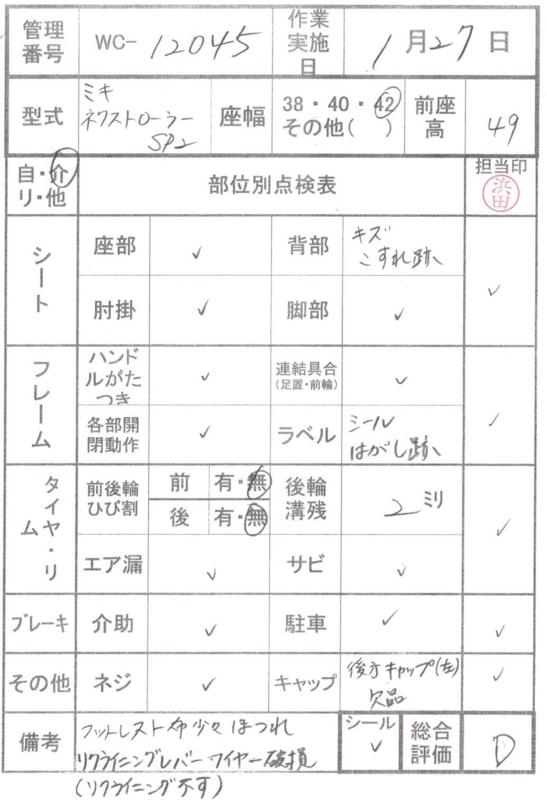 管理番号 WC-12045 作業実施日 1月27日
型式 ミキ ネクストローラー SP2 座幅 38・40・42 その他( ) 前座高 49
自・介 リ・他 部位別点検表 担当印 浜田
シート 座部 ✓ 背部 キズ こすれ跡、 ✓
肘掛 ✓ 脚部 ✓
フレーム ハンドルがたつき ✓ 連結具合 (足置・前輪) ✓ ✓
各部開閉動作 ✓ ラベル シール はがし跡、
タイヤ・リム 前後輪ひび割 前 有・無 後輪溝残 2ミリ ✓
後 有・無
エア漏 ✓ サビ ✓
ブレーキ 介助 ✓ 駐車 ✓ ✓
その他 ネジ ✓ キャップ 後方キャップ(左) 欠品 ✓
備考 フットレスト布少々ほつれ シール ✓ 総合評価 D
リクライニングレバーワイヤー破損
(リクライニング不可)